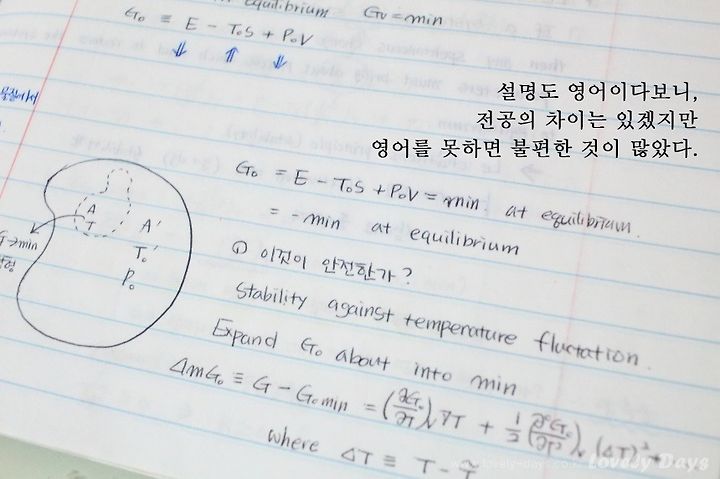 equilibrium G₀ = min
G₀ ≡ E − T₀S + P₀V
⇓ ⇑ ⇓
설명도 영어이다보니,
전공의 차이는 있겠지만
영어를 못하면 불편한 것이 많았다.
G₀ = E − T₀S + P₀V = min. at equilibrium.
= -min at equilibrium
A
T
A′
T₀′
P₀
→min
① 이것이 안전한가?
stability against temperature fluctation.
Expand G₀ about into min
ΔmG₀ ≡ G − G₀min = (∂G₀/∂T)ᵥ ∇T + 1/2 (∂²G₀/∂T²)ᵥ (ΔT)²
where ΔT ≡ T − T̃
Lovely Days